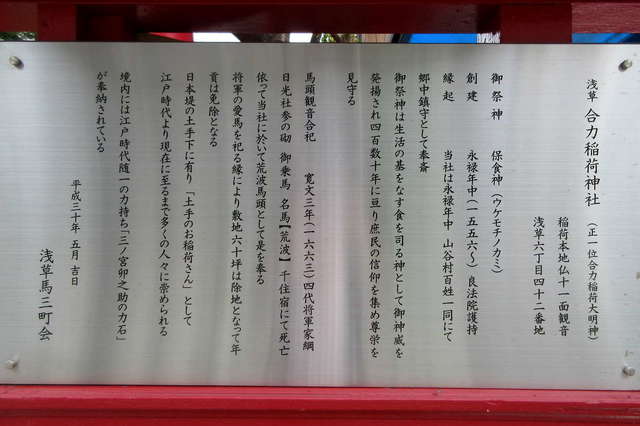 浅草 合力稲荷神社 (正一位合力稲荷大明神)
稲荷本地仏十一面観音
浅草六丁目四十二番地
御祭神 保食神(ウケモチノカミ)
創建 永禄年中(一五五六~)良法院護持
縁起 当社は永禄年中 山谷村百姓一同にて
郷中鎮守として奉斎
御祭神は生活の基をなす食を司る神として御神威を
発揚され四百数十年に亘り庶民の信仰を集め尊栄を
見守る
馬頭観音合祀 寛文三年(一六六三)四代将軍家綱
日光社参の砌 御乗馬 名馬【荒波】千住宿にて死亡
依って当社に於いて荒波馬頭として是を奉る
将軍の愛馬を祀る縁により敷地六十坪は除地となって年
貢は免除となる
日本堤の土手下に有り「土手のお稲荷さん」として
江戸時代より現在に至るまで多くの人々に崇められる
境内には江戸時代随一の力持ち「三ノ宮卯之助の力石」
が奉納されている
平成三十年 五月 吉日
浅草馬三町会